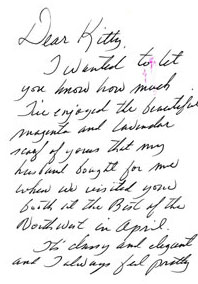 Dear Kitty,
I wanted to let
you know how much
I've enjoyed the beautiful
magenta and lavender
scarf of yours that my
husband bought for me
when we visited your
booth at the Best of the
Northwest in April.
It's classy and elegant
and I always feel pretty